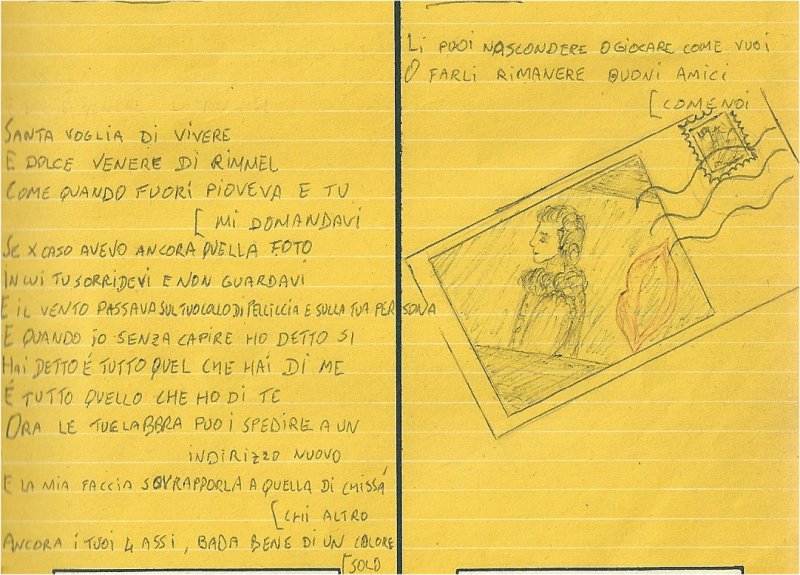 SANTA VOGLIA DI VIVERE
E DOLCE VENERE DI RIMMEL
COME QUANDO FUORI PIOVEVA E TU
[MI DOMANDAVI
SE X CASO AVEVO ANCORA QUELLA FOTO
IN CUI TU SORRIDEVI E NON GUARDAVI
E IL VENTO PASSAVA SUL TUO COLLO DI PELLICCIA E SULLA TUA PERSONA
E QUANDO IO SENZA CAPIRE HO DETTO SI
HAI DETTO É TUTTO QUEL CHE HAI DI ME
É TUTTO QUELLO CHE HO DI TE
ORA LE TUE LABBRA PUOI SPEDIRE A UN
INDIRIZZO NUOVO
E LA MIA FACCIA SOVRAPPORLA A QUELLA DI CHISSÁ
[CHI ALTRO
ANCORA I TUOI 4 ASSI, BADA BENE DI UN COLORE
[SOLO
LI PUOI NASCONDERE O GIOCARE COME VUOI
O FARLI RIMANERE BUONI AMICI
[COME NOI